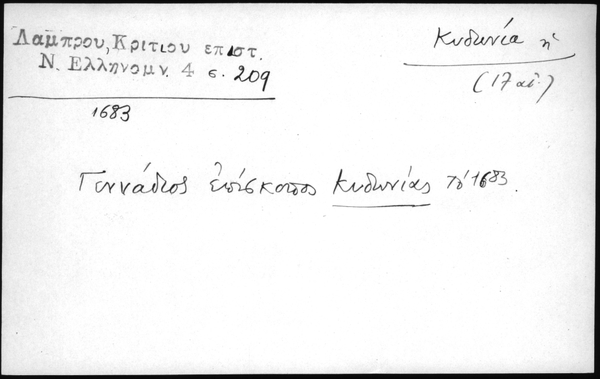 Λαμπρου, Κριτιου επιστ.
Ν. Ελληνομν. 4 σ. 209
1683
Κυδωνία ἡ
(17 αἰ.)
Γεννάδιος ἐπίσκοπος Κυδωνίας τὸ 1683.